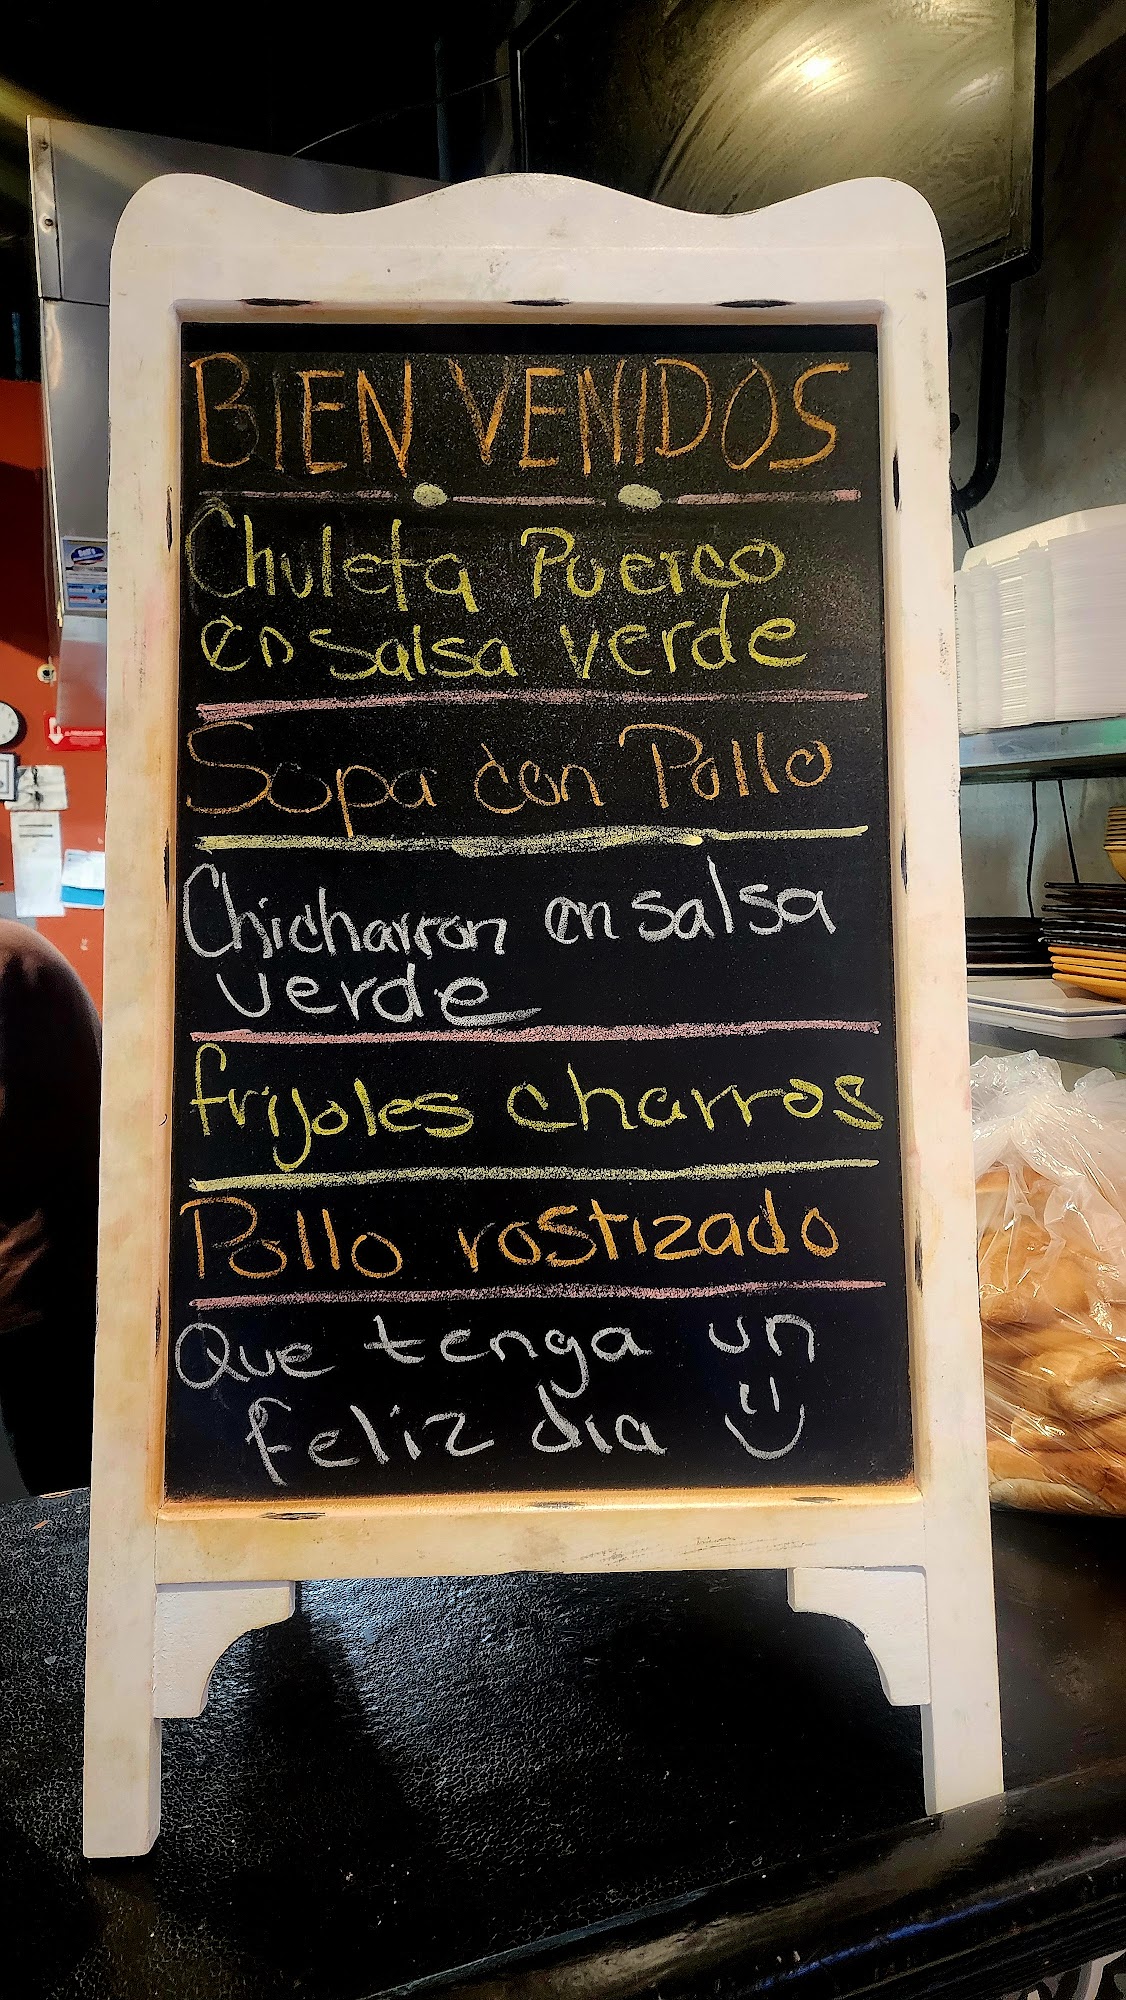 BIENVENIDOS
Chuleta Puerco
en salsa verde
Sopa con Pollo
Chicharron en salsa
verde
frijoles charros
Pollo rostizado
Que tenga un
feliz dia